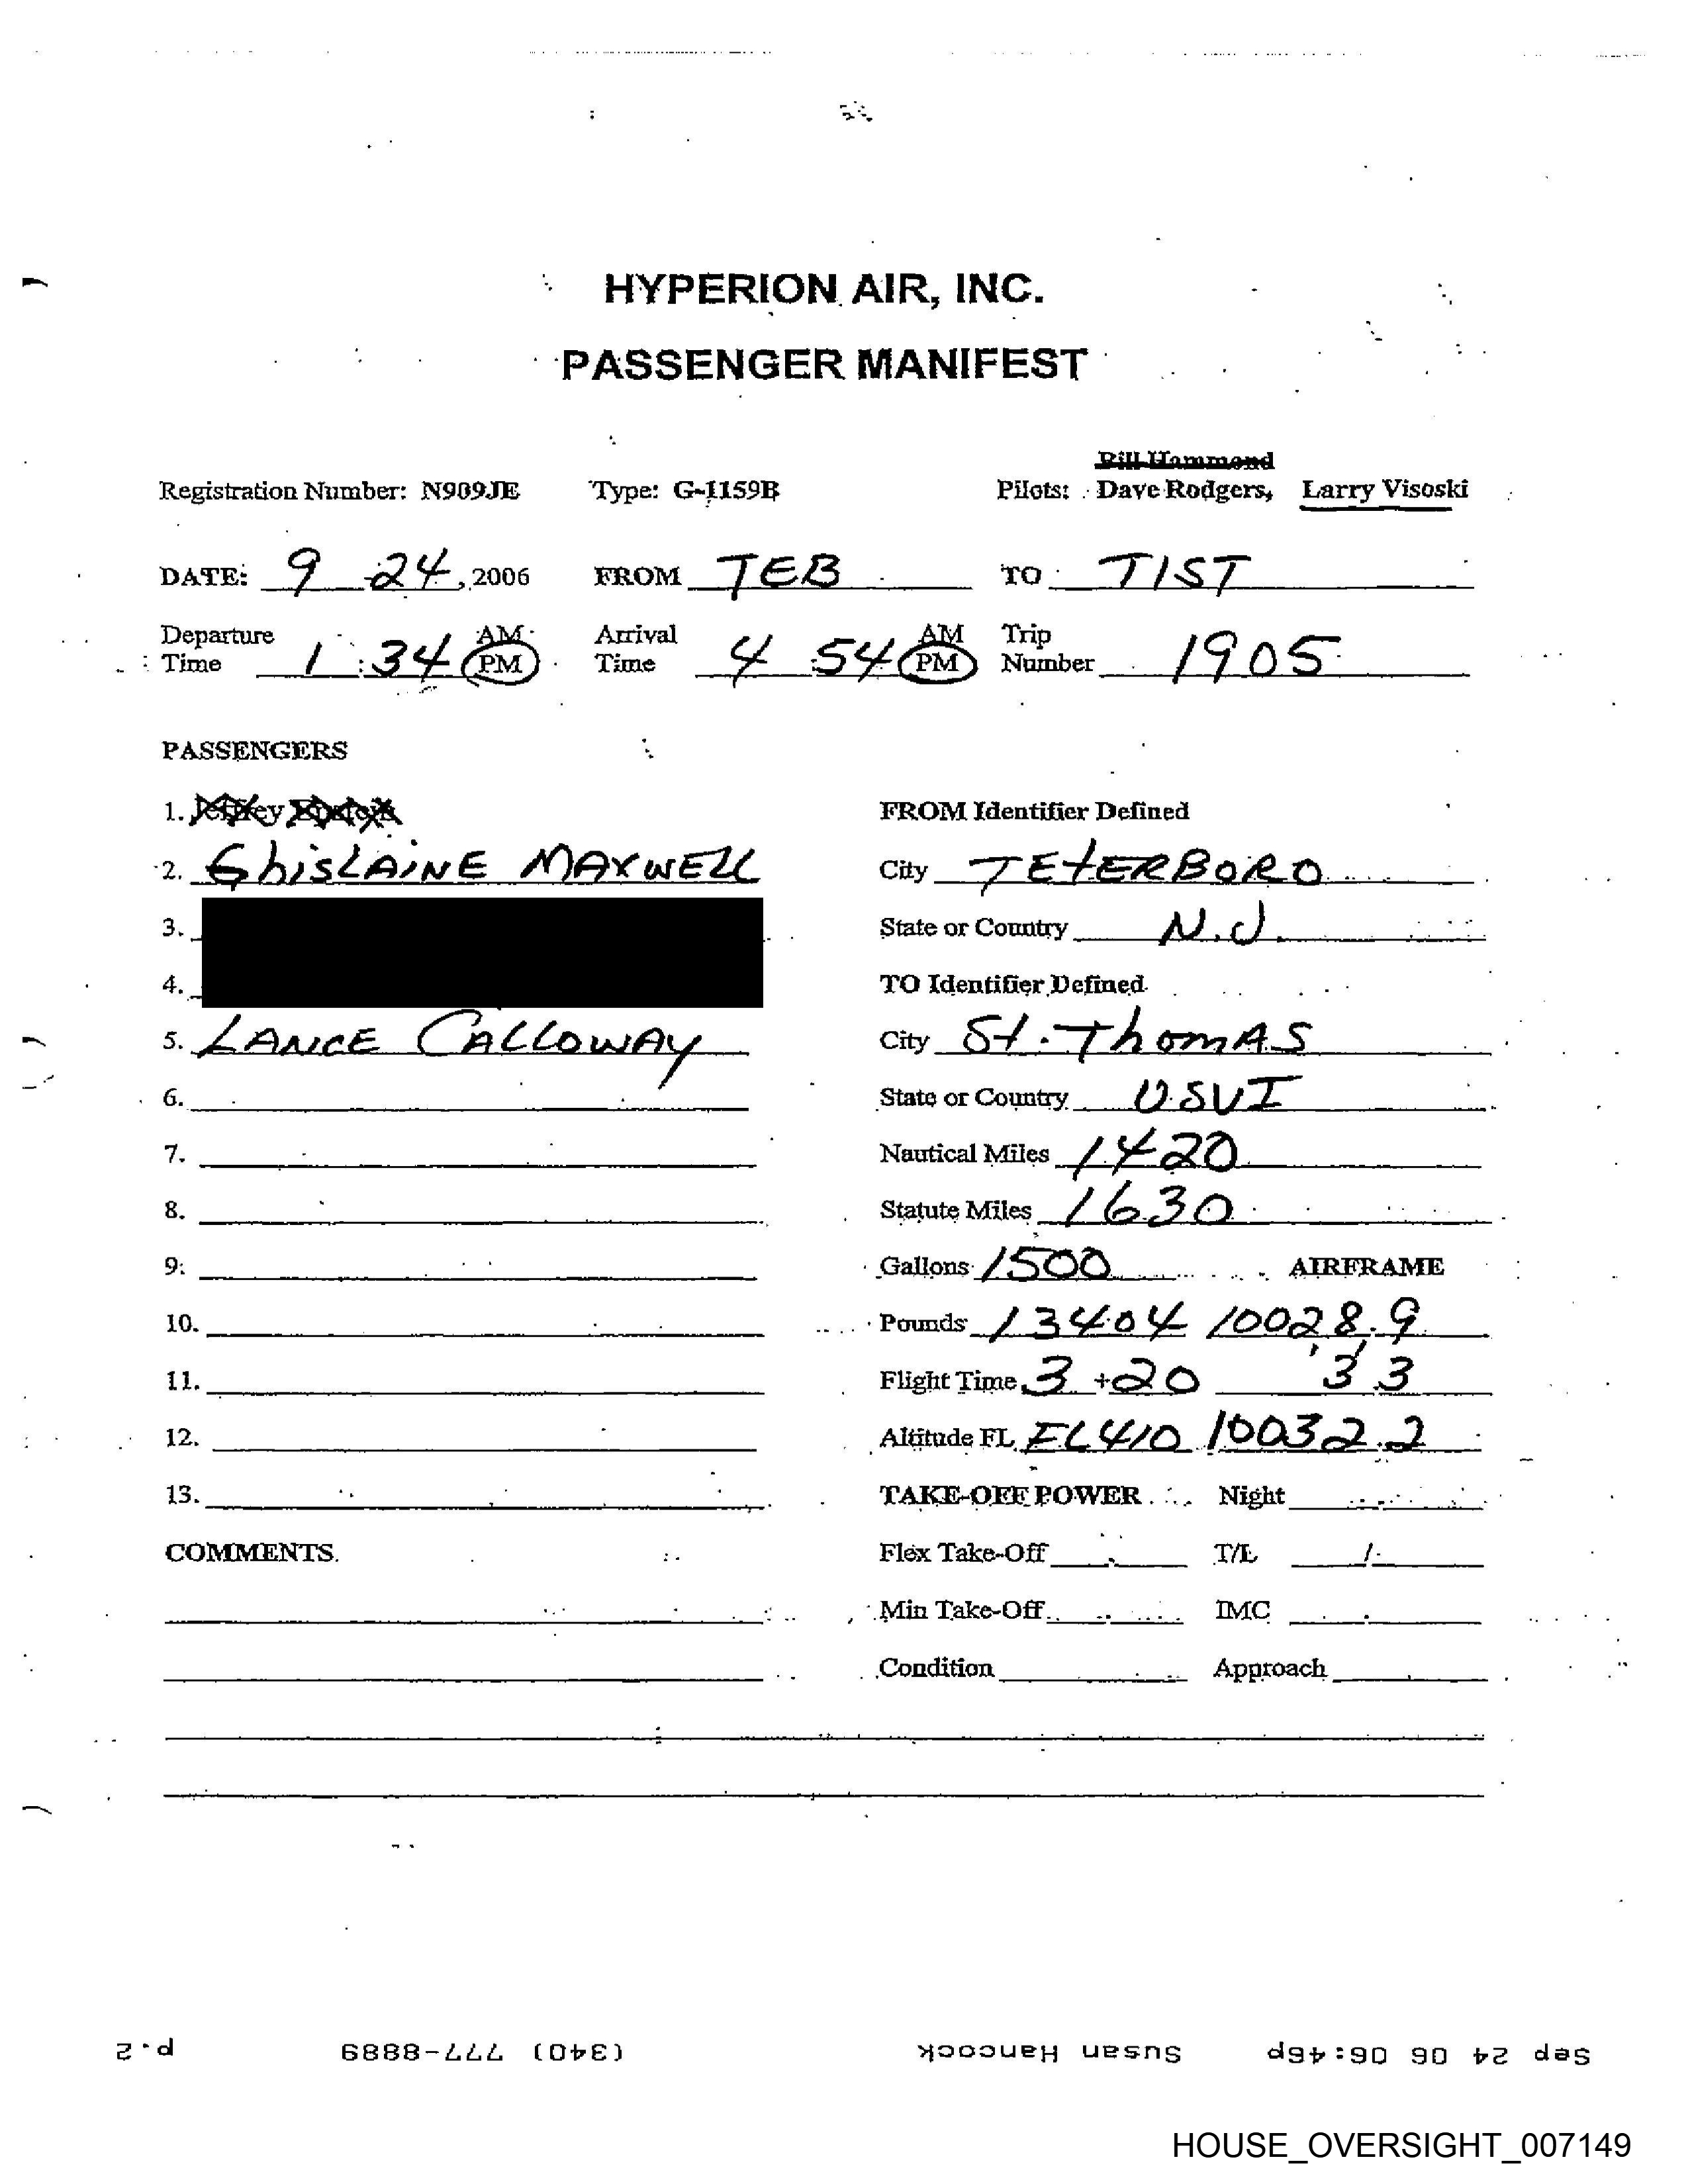 HYPERION AIR, INC.
PASSENGER MANIFEST
Bill Hammond
Registration Number: N909JE Type: G-1159B Pilots: Dave Rodgers, Larry Visoski
DATE: 9 - 24, 2006 FROM TEB TO TIST
Departure Time 1 : 34 AM PM Arrival Time 4 : 54 AM PM Trip Number 1905
PASSENGERS
1. Jeffrey Epstein FROM Identifier Defined
2. GhisLAiNE MAXWELL City TETERBORO
3. State or Country N.J.
4. TO Identifier Defined
5. LANCE CALLOWAY City St. ThomAS
6. State or Country USVI
7. Nautical Miles 1420
8. Statute Miles 1630
9. Gallons 1500 AIRFRAME
10. Pounds 13404 10028.9
11. Flight Time 3 +20 3 3
12. Altitude FL FL410 10032.2
13. TAKE-OFF POWER Night
COMMENTS Flex Take-Off T/L /
Min Take-Off IMC
Condition Approach
Sep 24 06 06:46p Susan Hancock (340) 777-8889 p.2
HOUSE_OVERSIGHT_007149